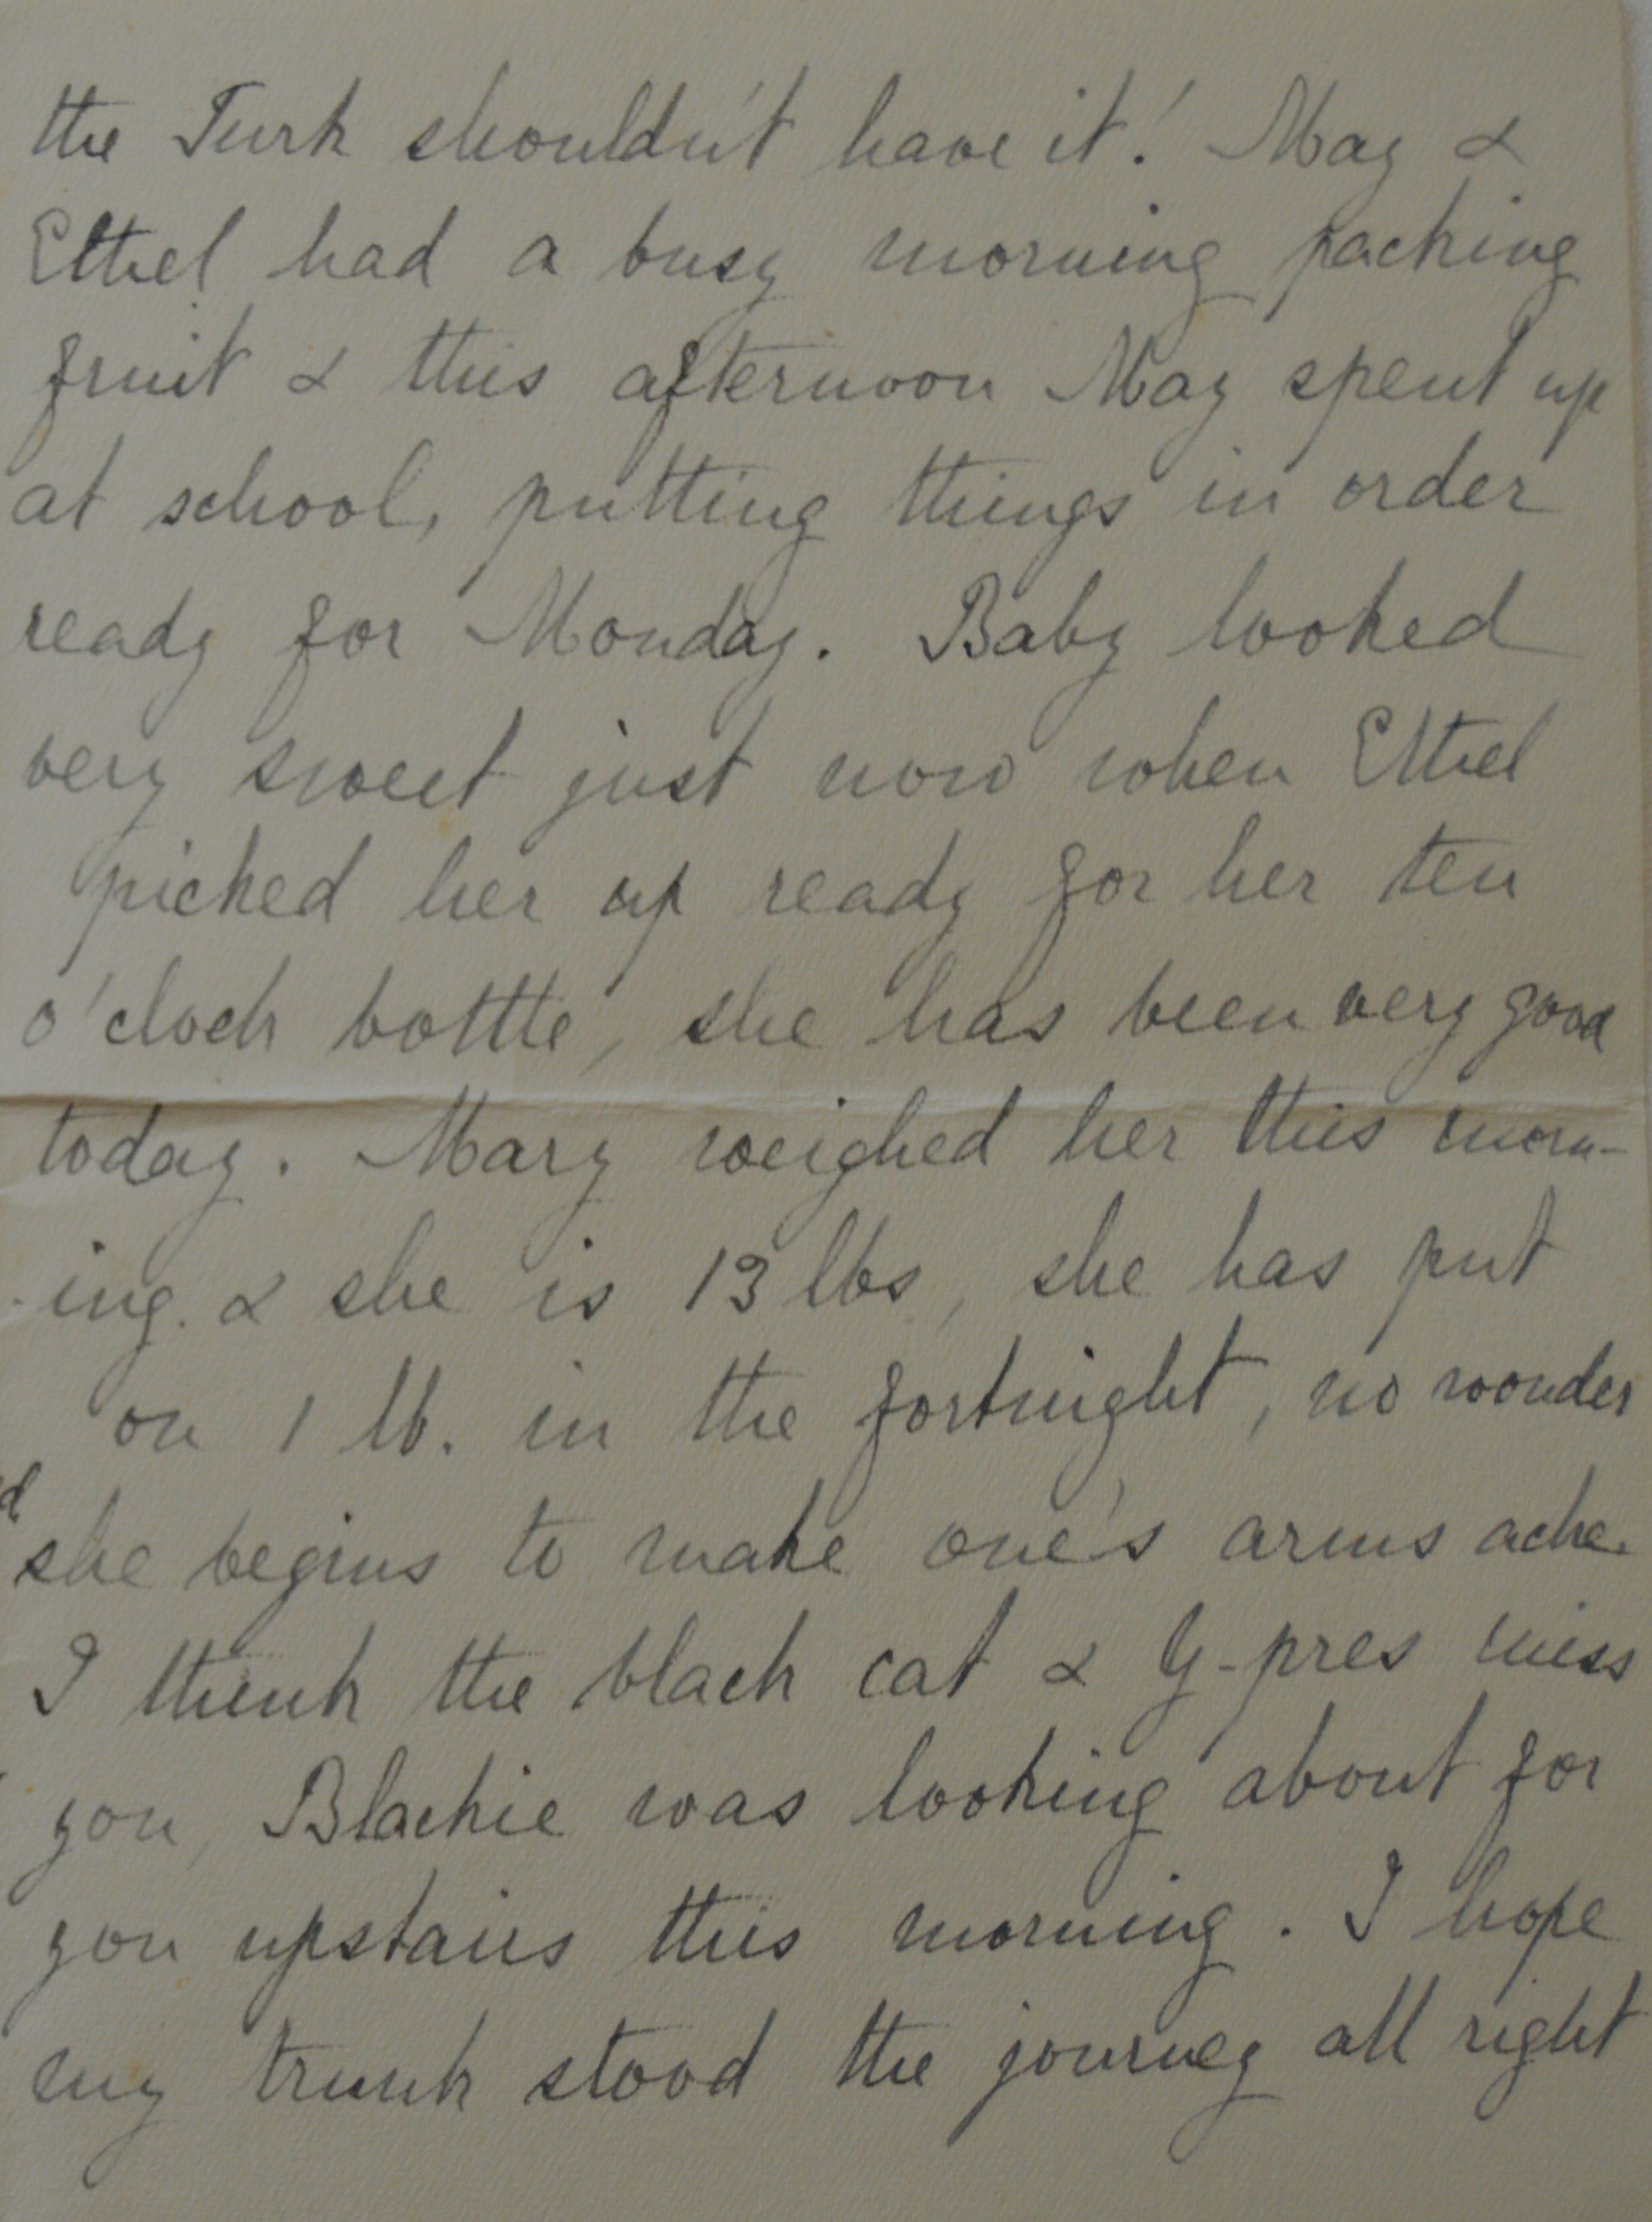 the Turk shouldn't have it! May &
Ethel had a busy morning packing
fruit & this afternoon May spent up
at school, putting things in order
ready for Monday. Baby looked
very sweet just now when Ethel
picked her up ready for her ten
o'clock bottle, she has been very good
today. Mary weighed her this morn-
-ing. & she is 13 lbs, she has put
on 1 lb. in the fortnight, no wonder
she begins to make one's arms ache.
I think the black cat & Y-pres miss
you, Blackie was looking about for
you upstairs this morning. I hope
my trunk stood the journey all right